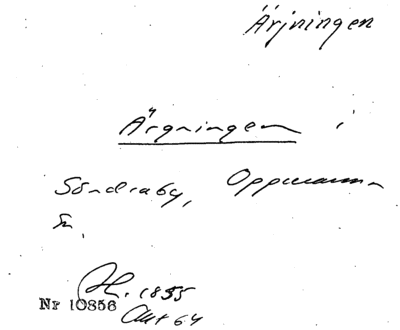 Ärjningen
Ärgningen i
Söndraby, Oppmanna
sn.
H. 1855
Nr 10856
Okt 64